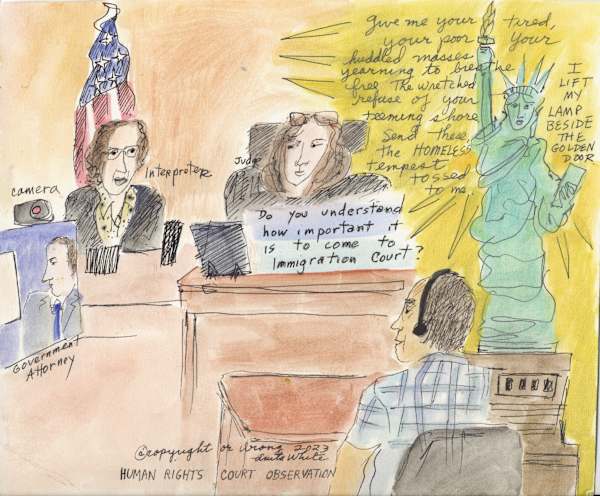 Give me your tired,
your poor Your
huddled masses
yearning to breathe
free The wretched
refuse of your
teeming shore
Send these,
the HOMELESS
tempest
tossed
to me.
I
LIFT
MY
LAMP
BESIDE
THE
GOLDEN
DOOR
Interpreter
Judge
camera
Do you understand
how important it
is to come to
Immigration Court?
Government
Attorney
©copyright or wrong 2023
White
HUMAN RIGHTS COURT OBSERVATION